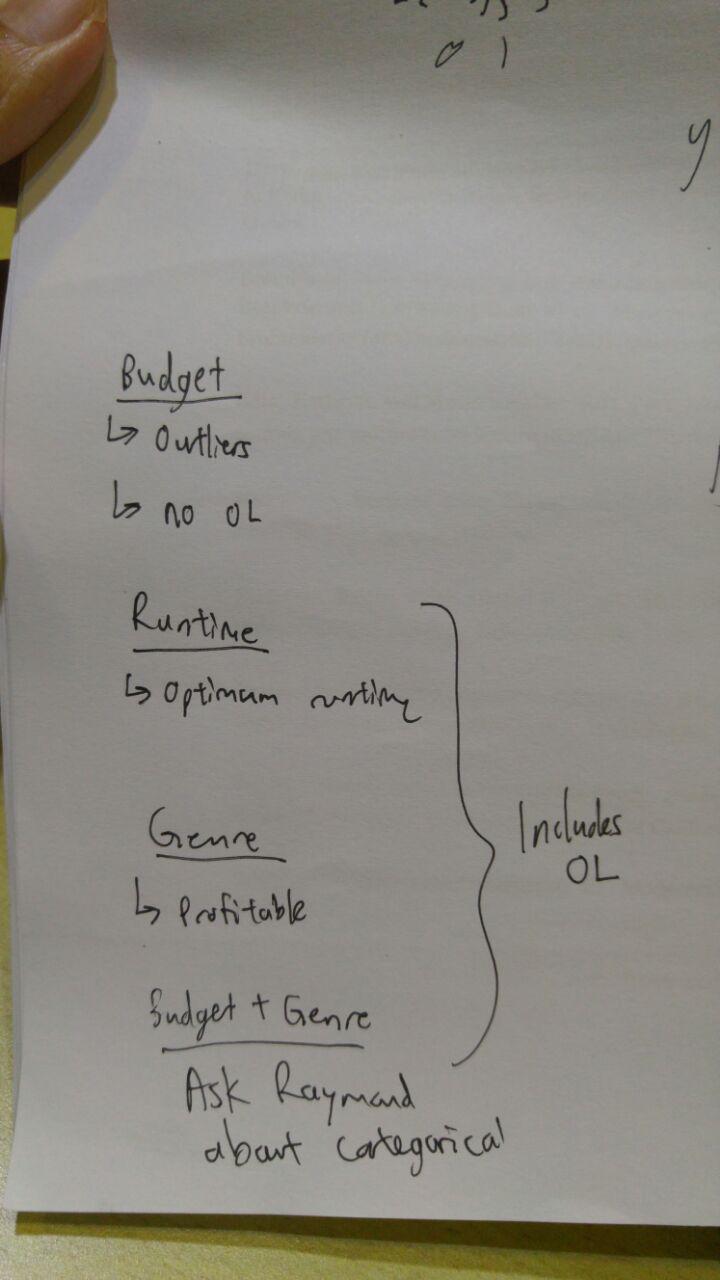 0 1
y
Budget
↳ Outliers
↳ no OL
Runtime
↳ Optimum runtime
Genre
↳ Profitable
Includes
OL
Budget + Genre
Ask Raymond
about categorical